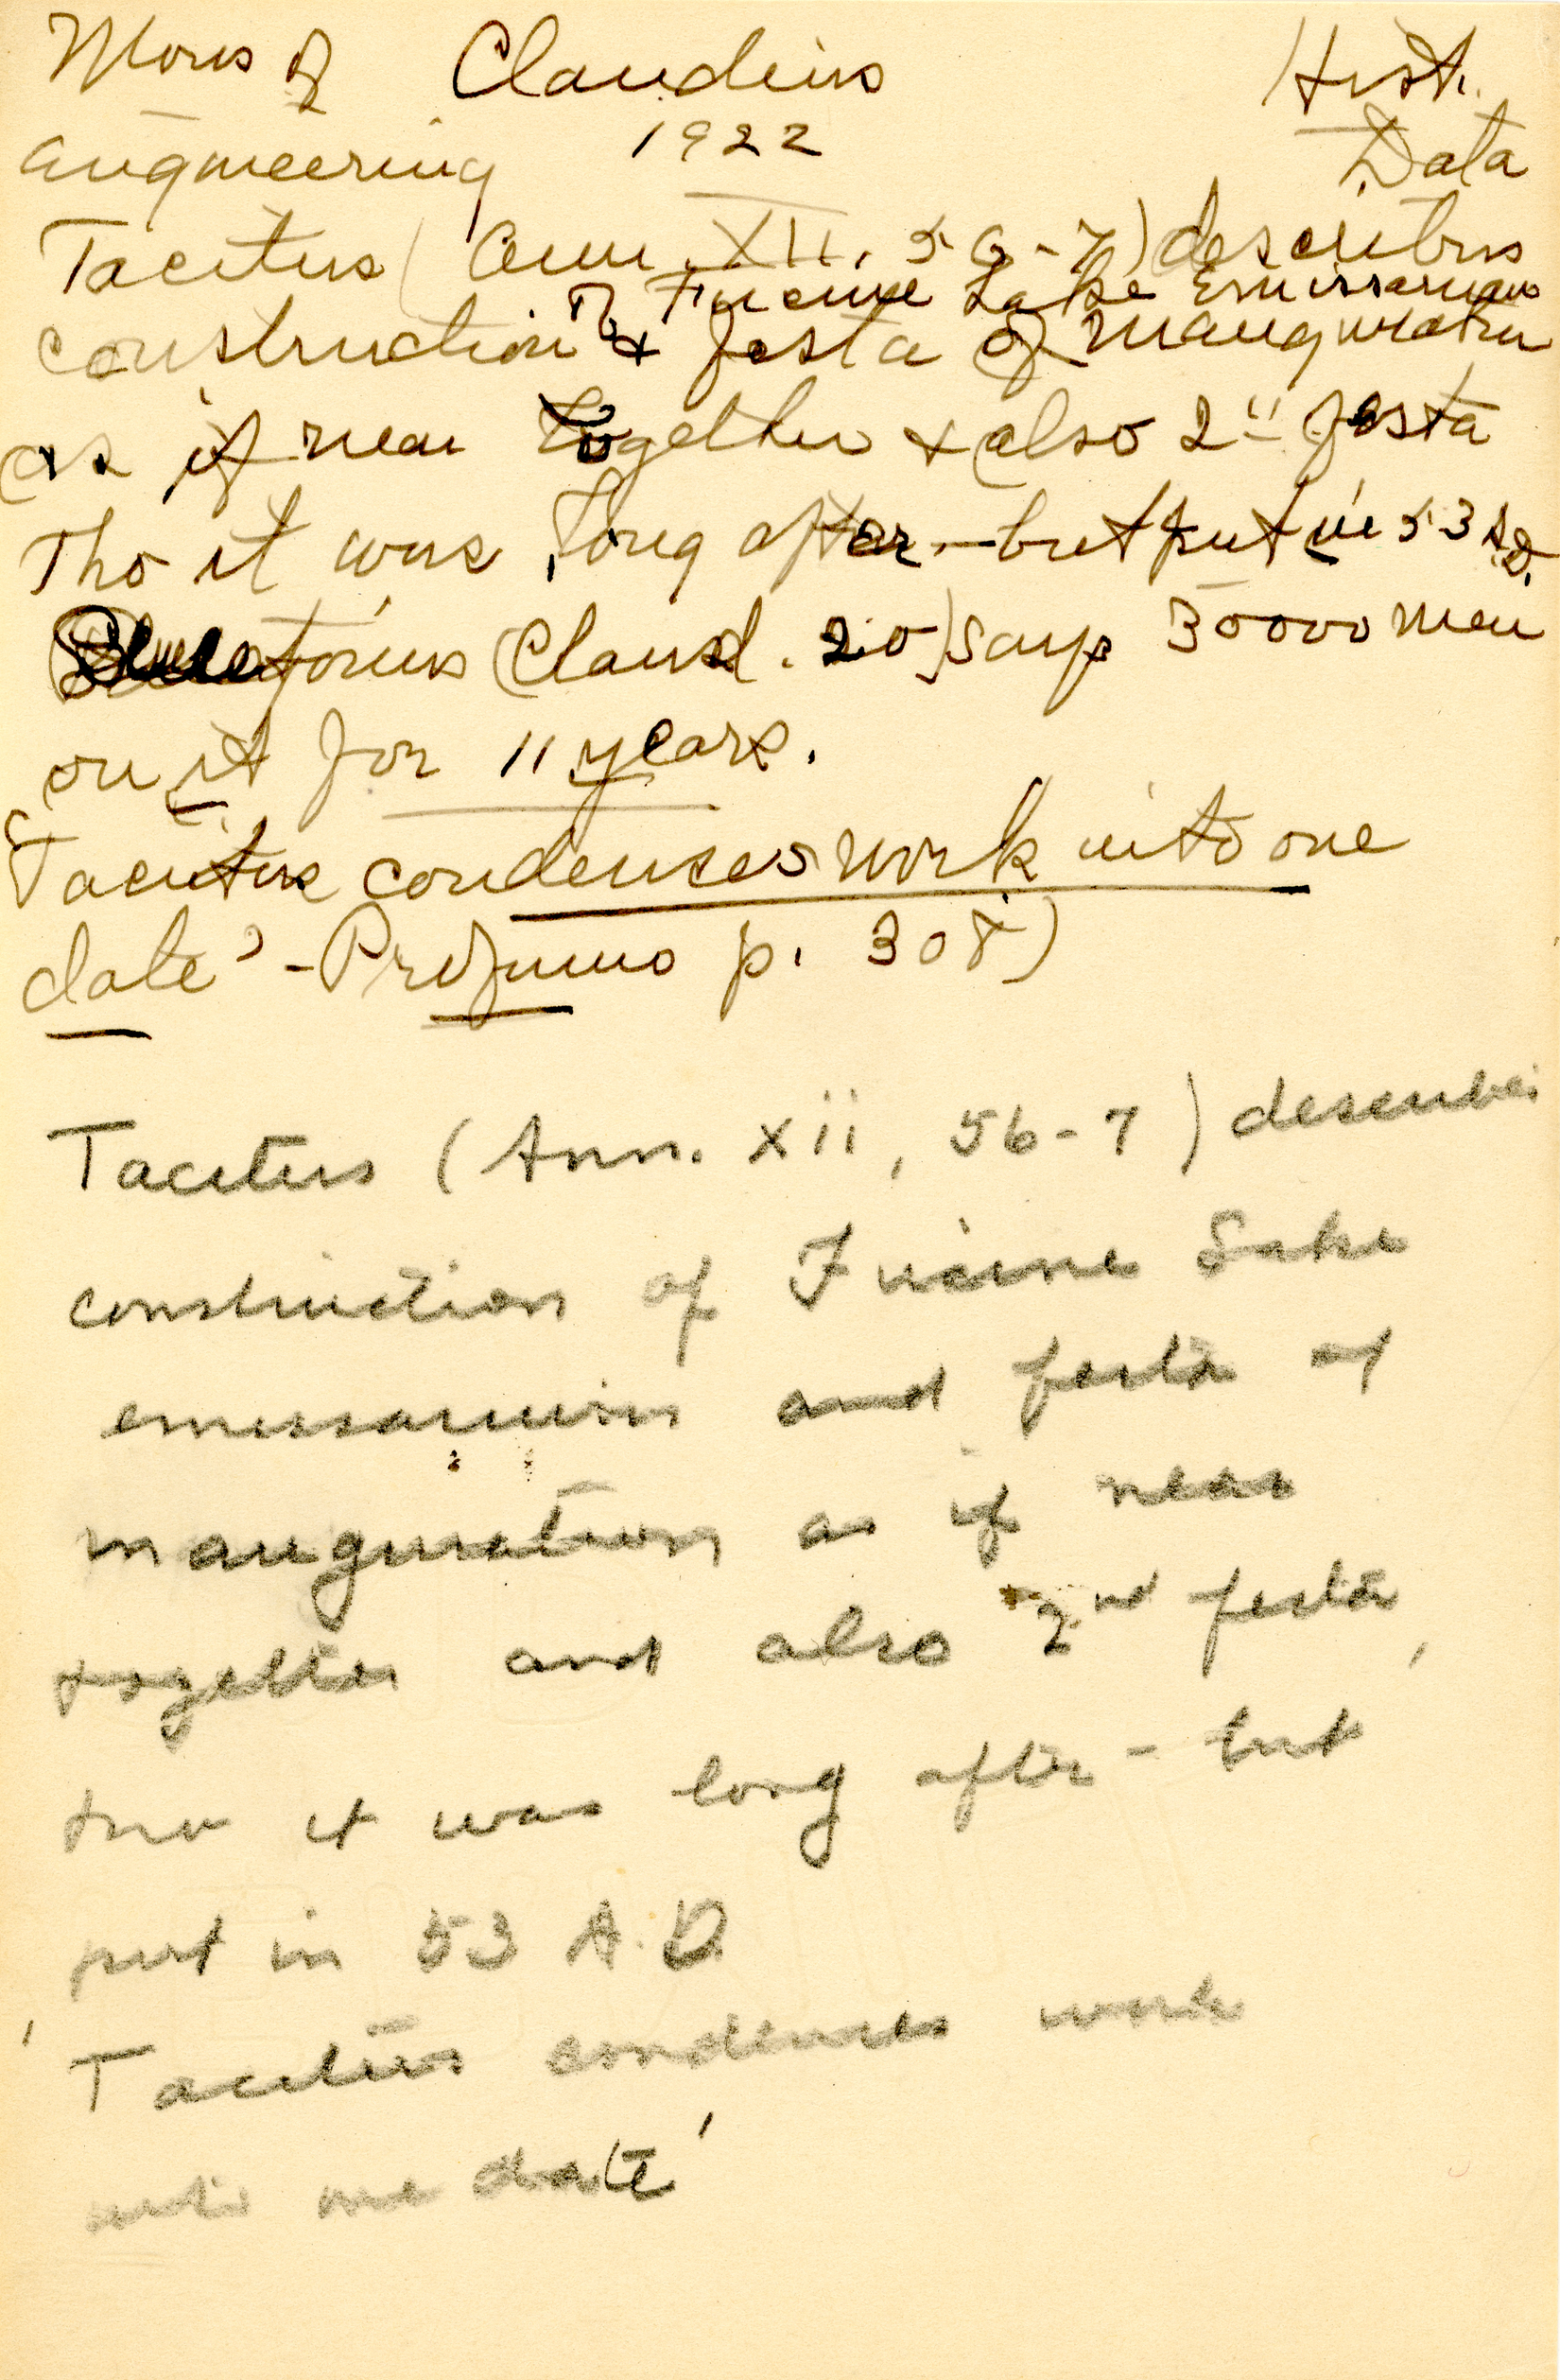 Works of Claudius Hist.
engineering 1922 Data
Tacitus (Ann. XII. 56-7) describes
of Fucine Lake Emissarium
construction & festa of inauguration
as if near together & also 2" festa
Tho it was long after - but put in 53 A.D.
Suetonius (Claud. 20) says 30000 men
on it for 11 years.
'Tacitus condenses work into one
date' - Profumo p. 308)
Tacitus (Ann. xii, 56-7) describes
construction of Fucine Lake
emissarium and festa of
inauguration as if near
together and also 2nd festa,
tho it was long after - but
put in 53 A.D.
'Tacitus condenses work
into one date'